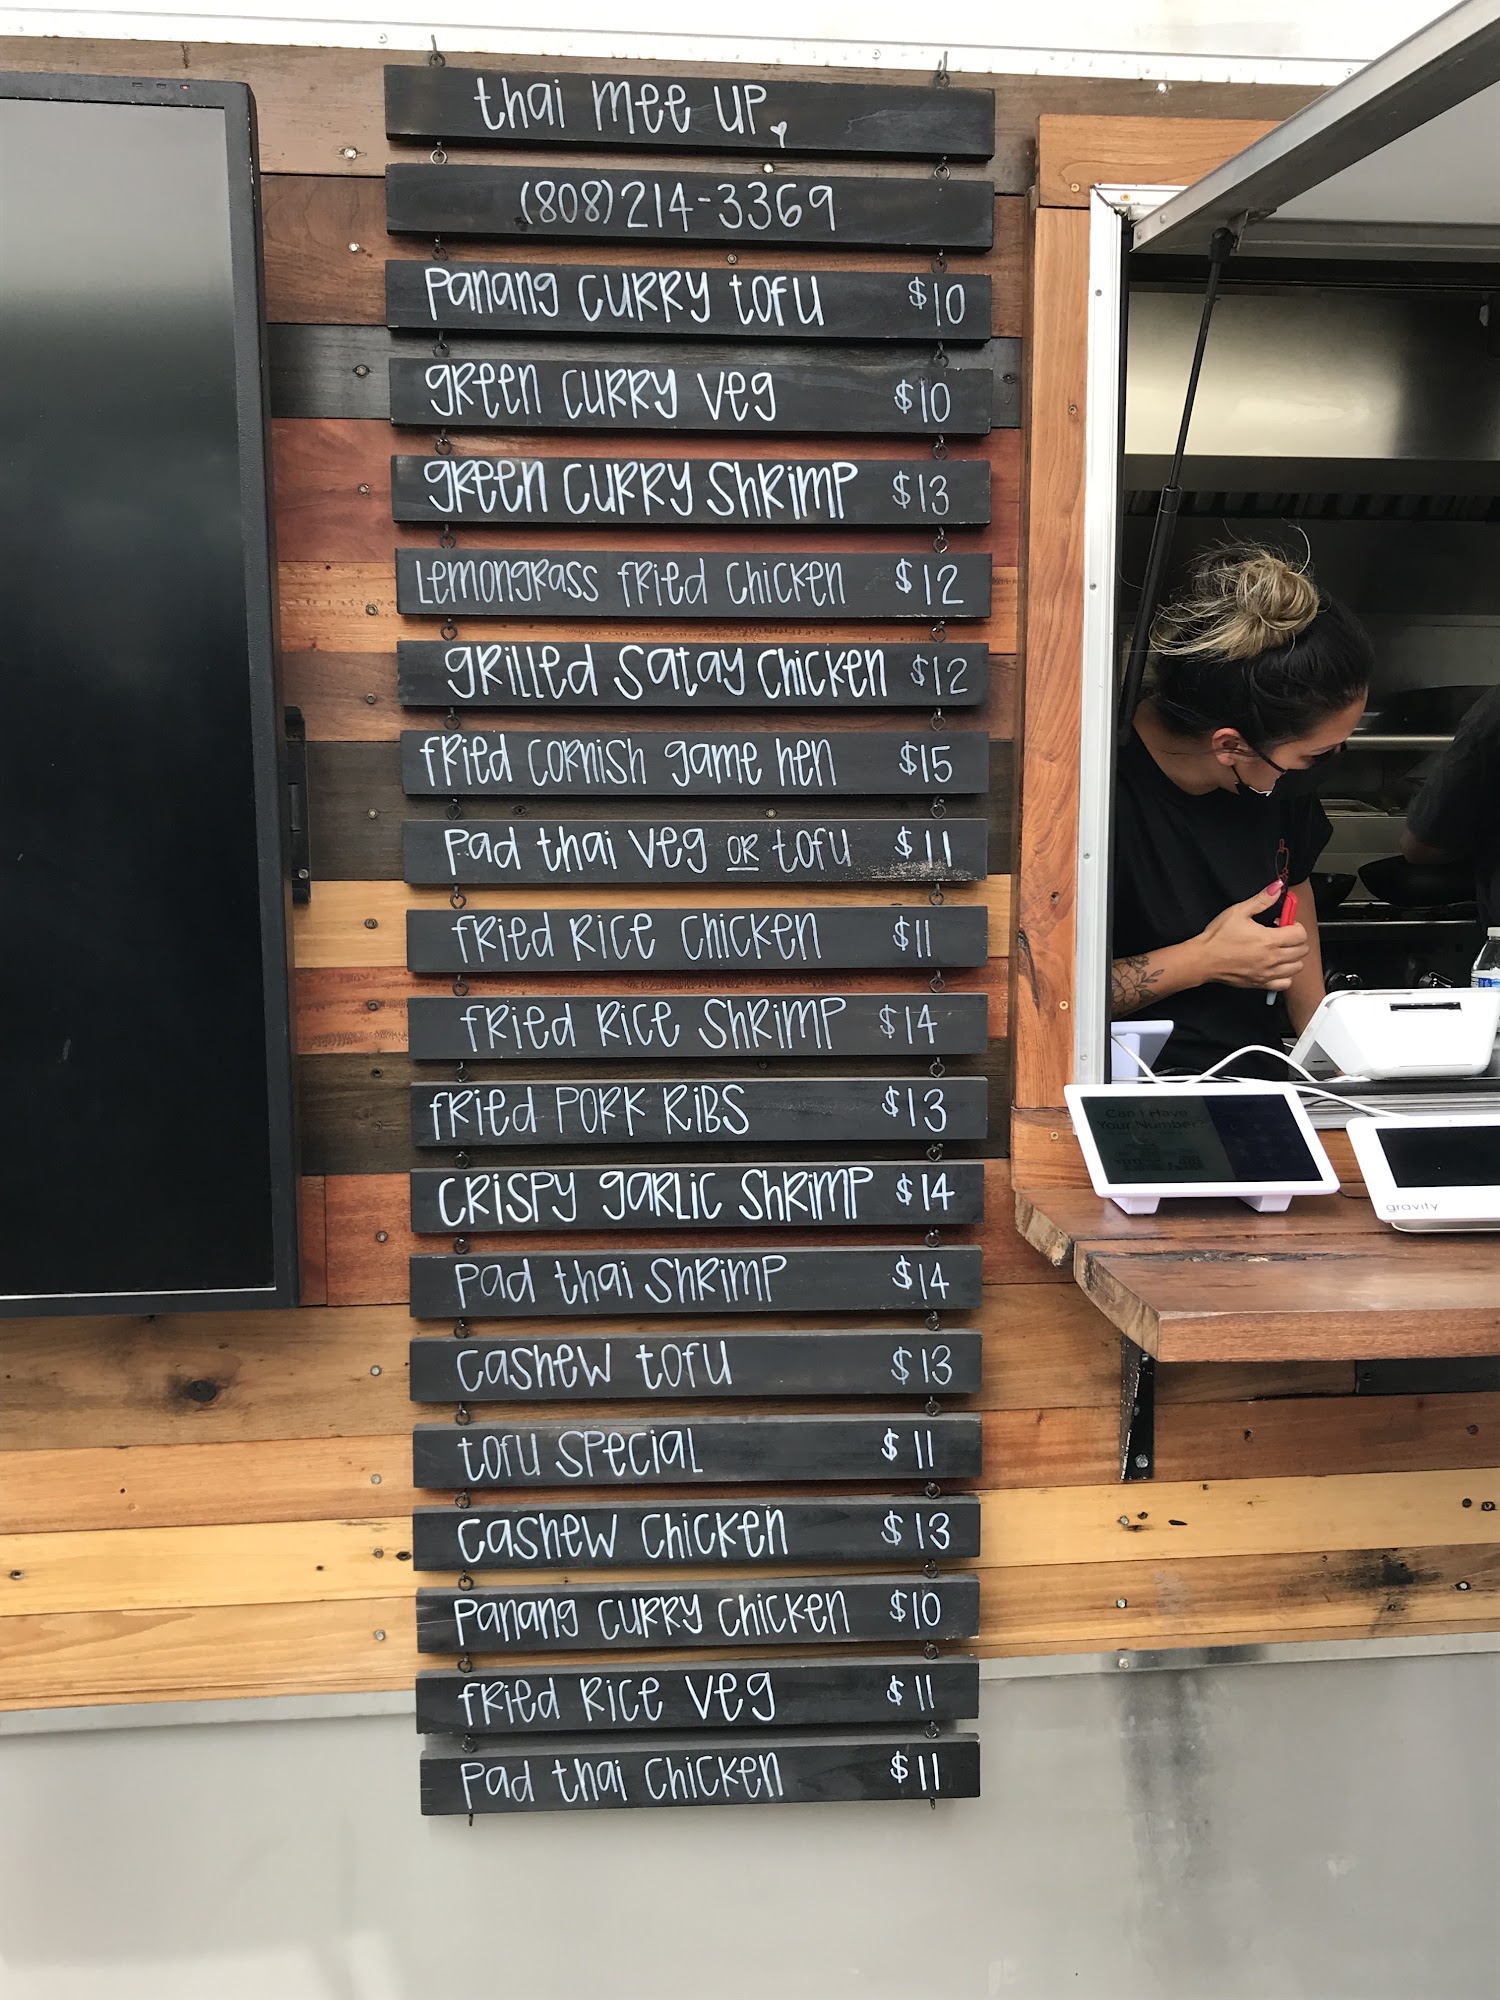 thai mee up
(808)214-3369
panang curry tofu $10
green curry veg $10
green curry shrimp $13
Lemongrass fried chicken $12
grilled satay chicken $12
fried cornish game hen $15
pad thai veg or tofu $11
fried rice chicken $11
fried rice shrimp $14
fried pork ribs $13
crispy garlic shrimp $14
pad thai shrimp $14
cashew tofu $13
tofu special $11
cashew chicken $13
panang curry chicken $10
fried rice veg $11
pad thai chicken $11
Can I Have
Your Number?
gravity